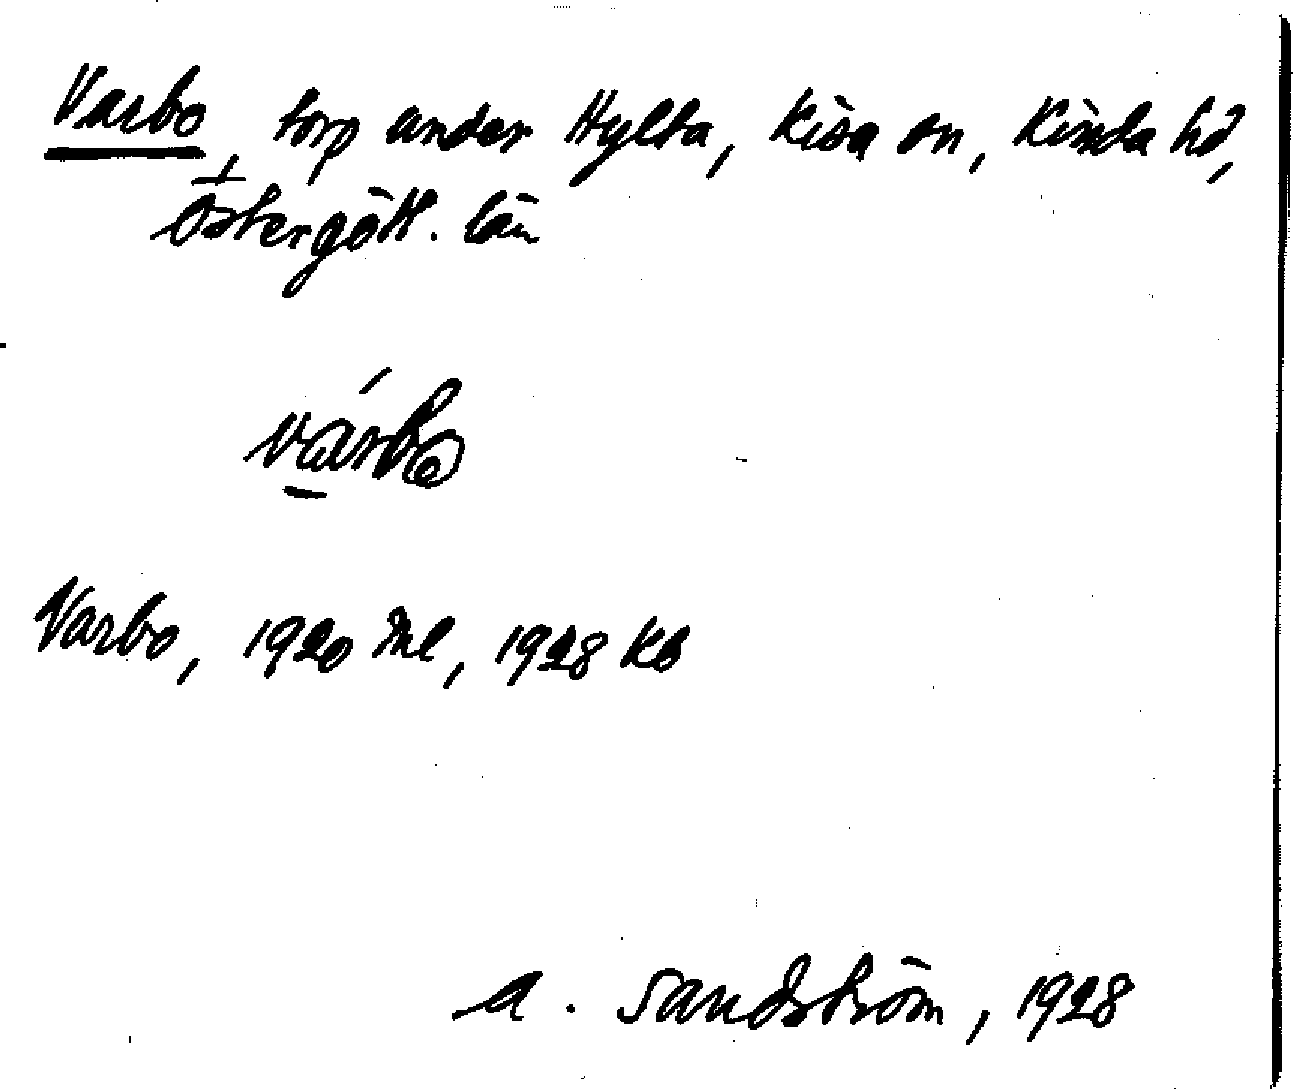 Varbo, torp under Hylta, Kisa sn, Kinda hd,
Östergötl. län
várbo
Varbo, 1920 Ml, 1928 Kb
A. Sandström, 1928